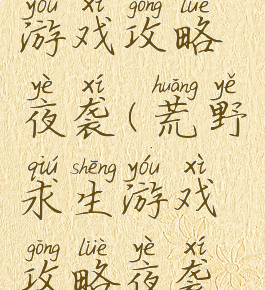 yóu xì gōng lüè
游戏攻略
yè xí huāng yě
夜袭(荒野
qiú shēng yóu xì
求生游戏
gōng lüè yè xí
攻略夜袭